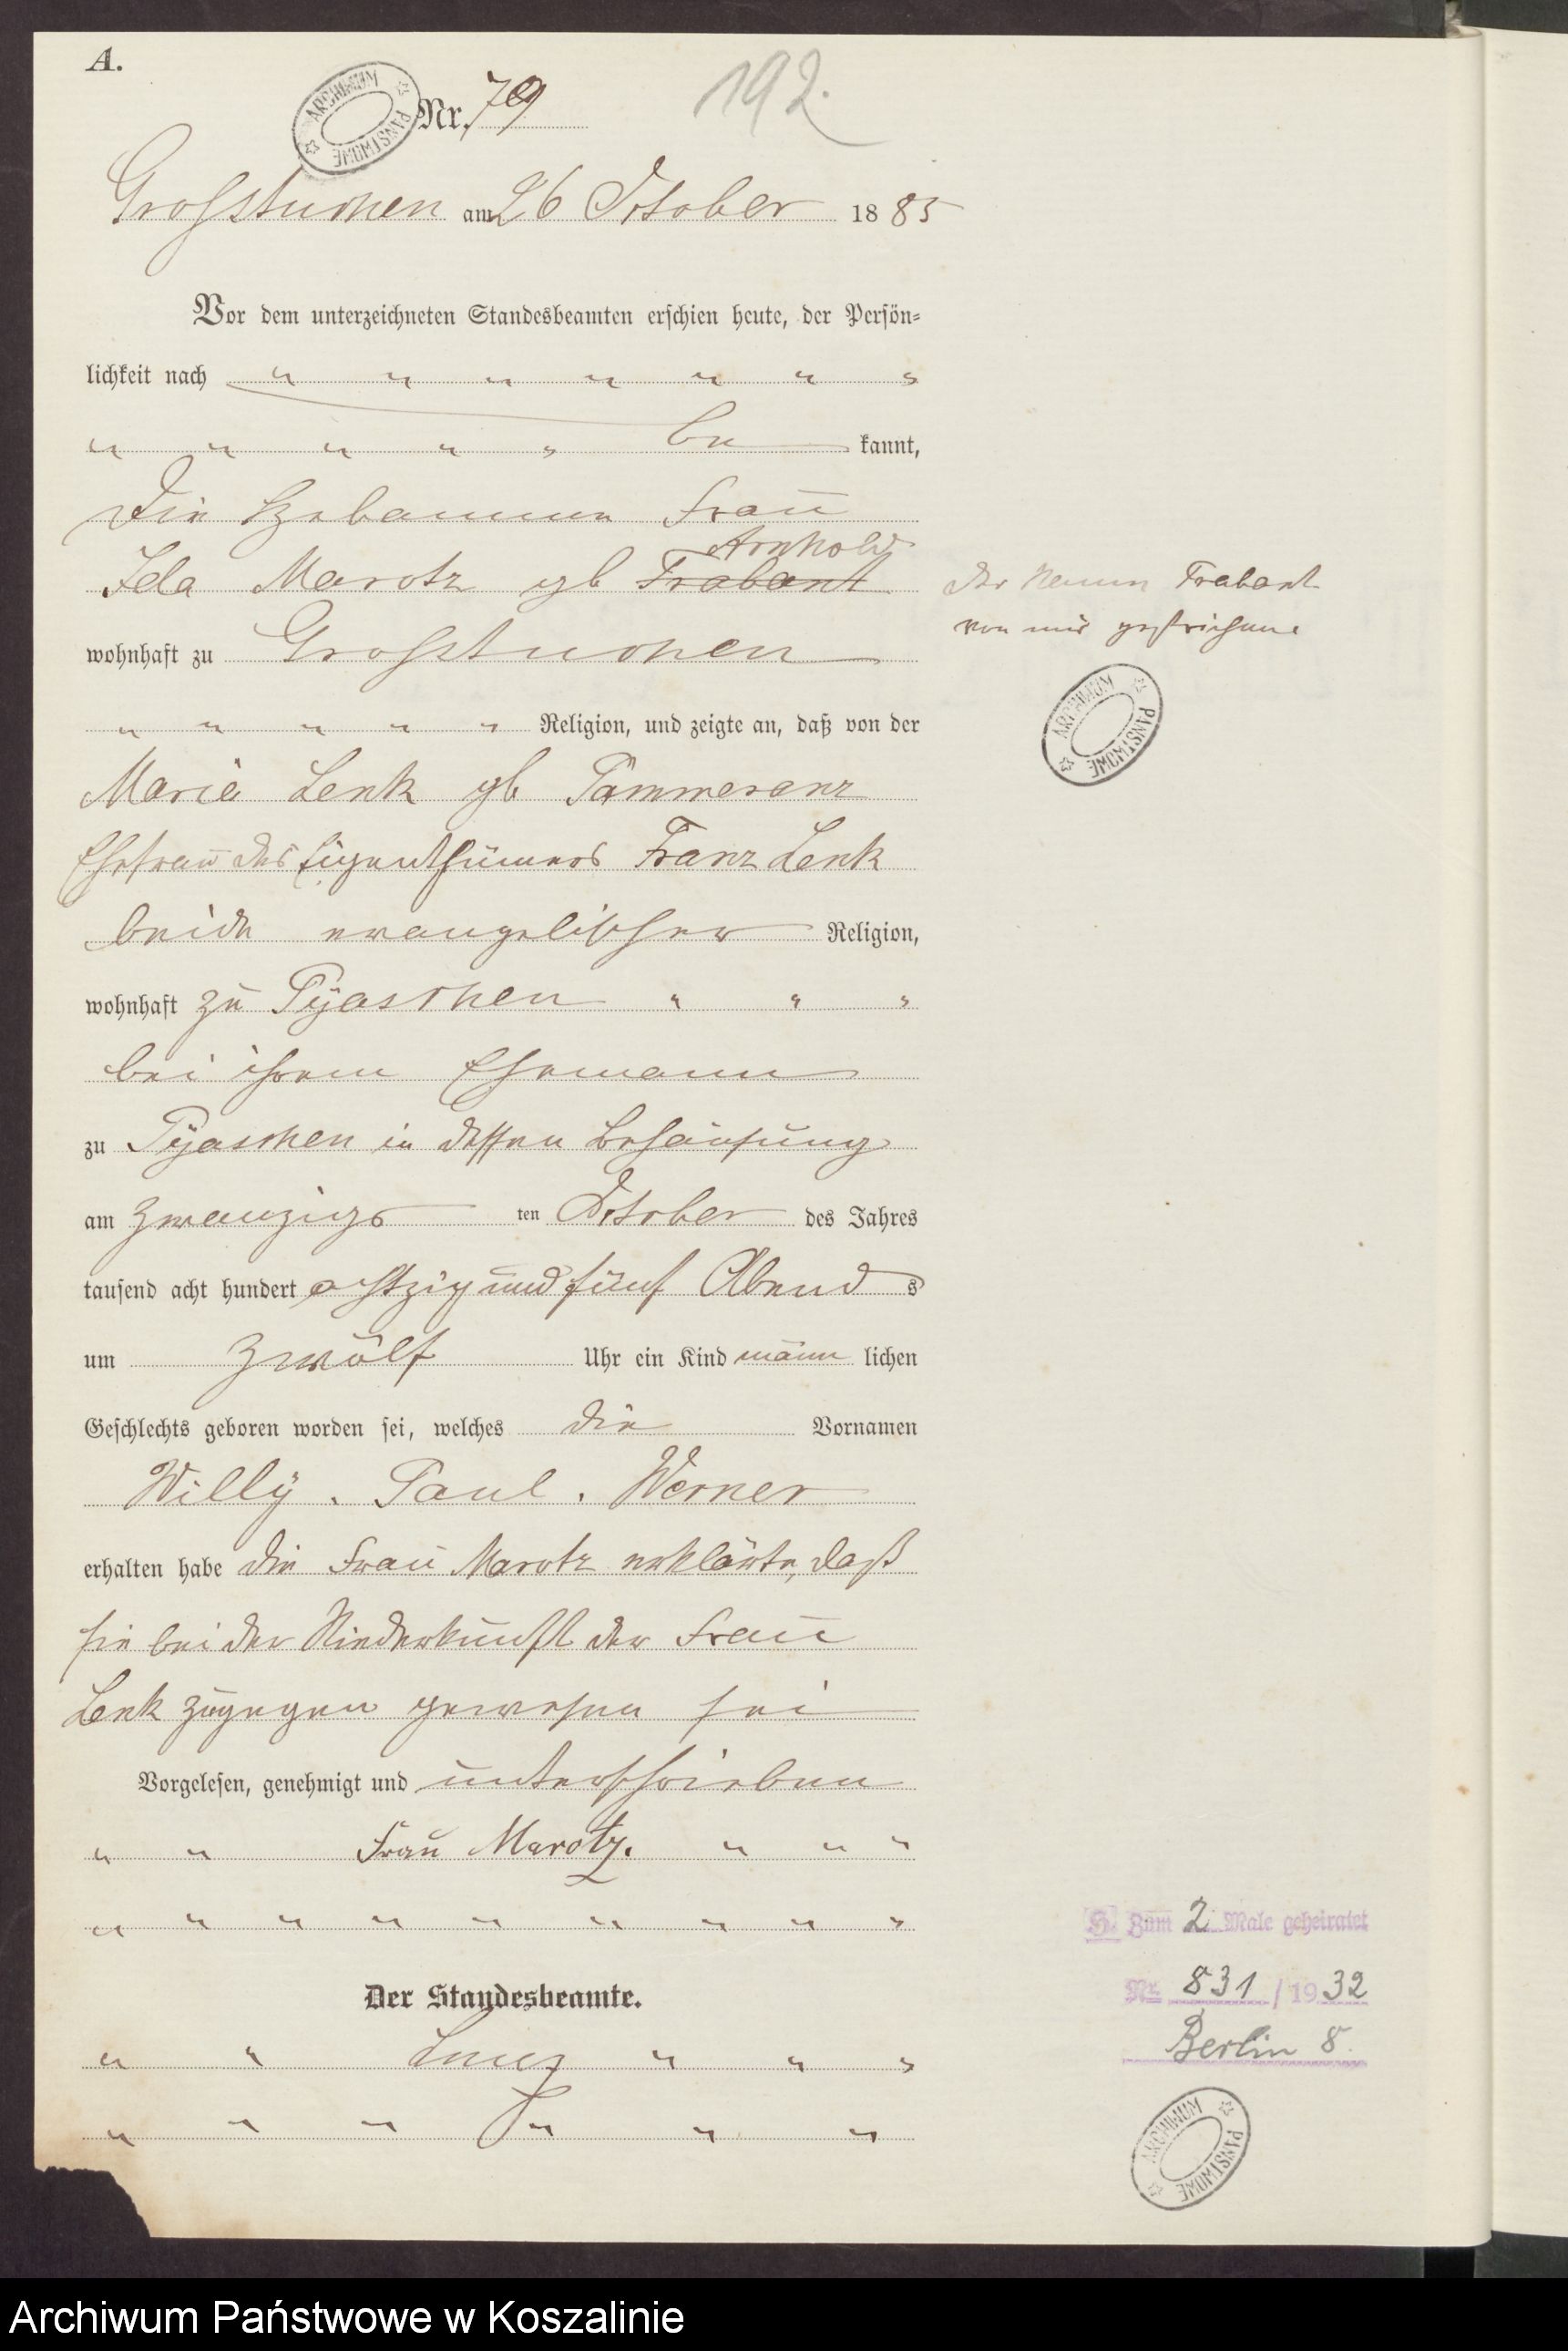 A.
192.
Nr. 79
Grosstuchen am 26 October 1885
Vor dem unterzeichneten Standesbeamten erschien heute, der Persön-
lichkeit nach " " " " " " "
" " " " " be kannt,
die Hebamme Frau
Arnhold
Ida Marotz gb Trabant
Der Namen Trabant
von mir gestrichen
wohnhaft zu Grosstuchen
" " " " " Religion, und zeigte an, daß von der
Marie Lenk gb Pammeranz
Ehefrau des Eigenthümers Franz Lenk
beide evangelischer Religion,
wohnhaft zu Pyaschen " " "
bei ihrem Ehemann
zu Pyaschen in dessen Behausung
am zwanzigs ten October des Jahres
tausend acht hundert achtzig und fünf Abend s
um zwölf Uhr ein Kind männ lichen
Geschlechts geboren worden sei, welches die Vornamen
Willy . Paul . Werner
erhalten habe die Frau Marotz erklärte, daß
sie bei der Niederkunft der Frau
Lenk zugegen gewesen sei
Vorgelesen, genehmigt und unterschrieben
" " Frau Marotz. " " "
" " " " " " " " "
Der Standesbeamte.
" " " " "
" " " " " "
H. Zum 2 Male geheiratet
Nr. 831 / 1932
Berlin 8.
ARCHIWUM PAŃSTWOWE
ARCHIWUM PAŃSTWOWE
ARCHIWUM PAŃSTWOWE
Archiwum Państwowe w Koszalinie